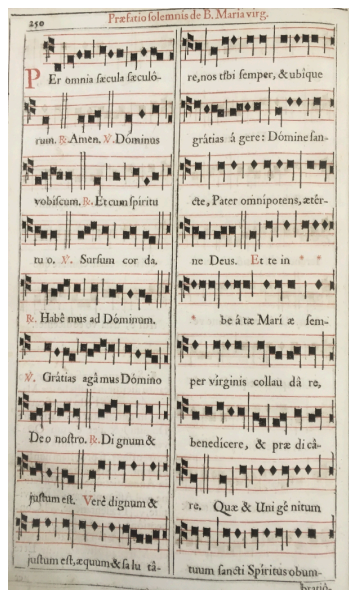 250
Præfatio solemnis de B. Maria virg.
PEr omnia sæcula sæculó-
rum. ℟. Amen. ℣. Dóminus
vobiscum. ℟. Et cum spíritu
tu o. ℣. Sursum cor da.
℟. Habê mus ad Dóminum.
℣. Grátias agâ mus Dómino
De o nostro. ℟. Di gnum &
justum est. Verè dignum &
justum est, æquum & sa lu tâ-
re, nos tibi semper, & ubíque
grátias á gere: Dómine san-
cte, Pater omnípotens, ætér-
ne Deus. Et te in * *
* be â tæ Marí æ sem-
per vírginis collau dâ re,
benedícere, & præ di câ-
re. Quæ & Uni gé nitum
tuum sancti Spíritus obum-
bratió-